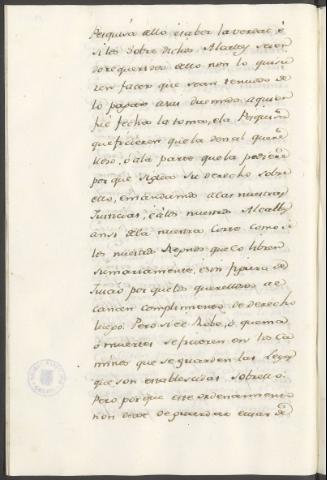 Pesquisa dello è saber la verdat, è
si los sobre dichos Alcalles seien
do requeridos dello non lo quisie
ren facer que sean tenudos de
lo pagar à su dueño, à quien
fue fecha la toma, è la Pesquisa
que ficieren que la den al querè
lloso, ò à la parte que la pediere
por que siga su derecho sobre
ello, è mandamos à las nuestras
Justicias, è à los nuestros Alcalles
ansi de la nuestra Corte como de
los nuestros Regnos que lo libren
sumariamente, è sin figura de
Juicio por que los querellosos al
cancen complimiento de derecho
luego. Pero si el Robo, ò quema
ò muertes se ficieren en los Ca
minos que se guarden las Leyes
que son establescidas sobrello.
Pero porque este ordenamiento
non deve de guardar en las de